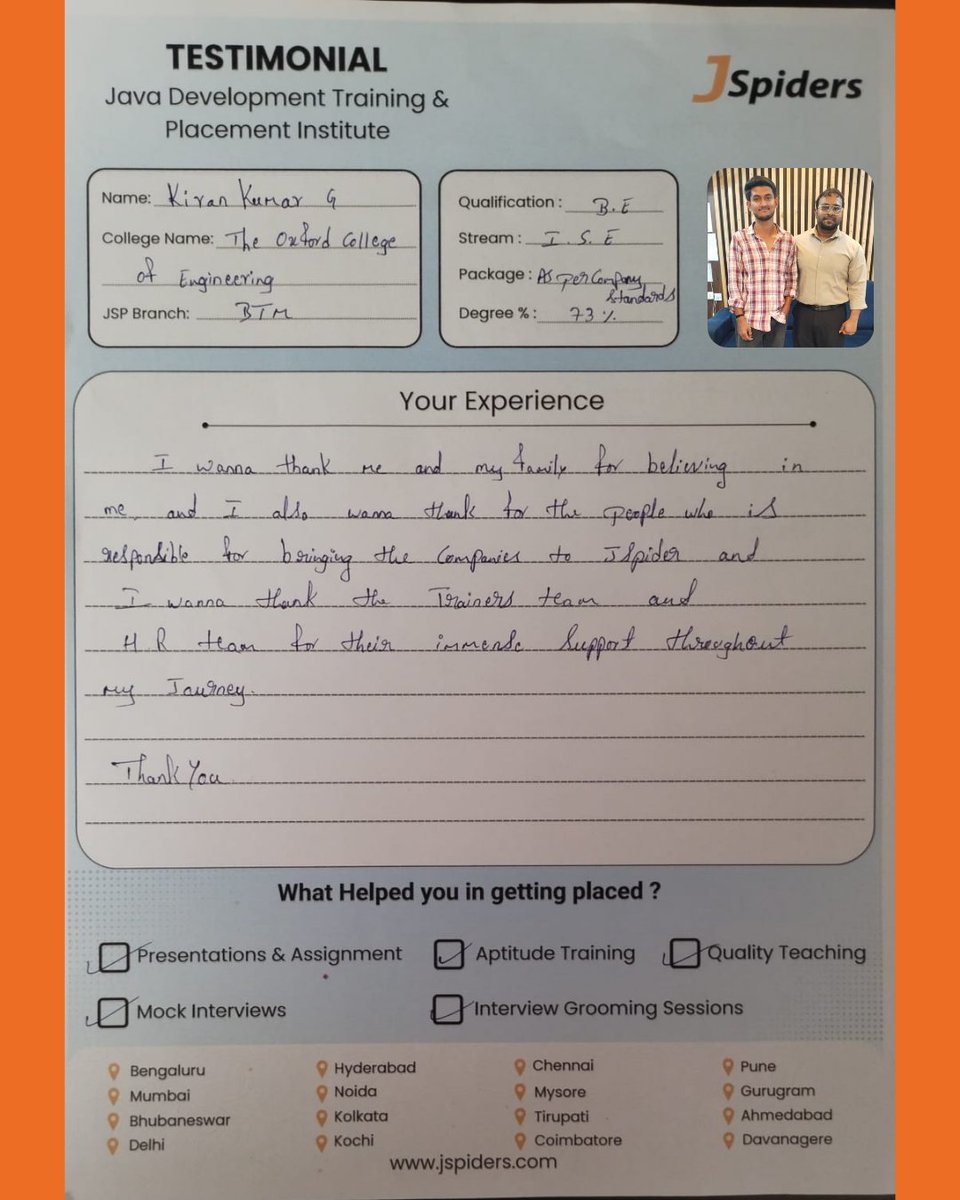 TESTIMONIAL
Java Development Training &
Placement Institute
JSpiders
Name: Kiran Kumar G
College Name: The Oxford College
of Engineering
JSP Branch: BTM
Qualification : B.E
Stream : I.S.E
Package : As per Company
Standards
Degree % : 73 %
Your Experience
I wanna thank me and my family for believing in
me, and I also wanna thank for the people who is
responsible for bringing the Companies to JSpider and
I wanna thank the Trainers team and
H R team for their immense Support throughout
my Journey.
Thank You
What Helped you in getting placed ?
Presentations & Assignment
Aptitude Training
Quality Teaching
Mock Interviews
Interview Grooming Sessions
Bengaluru
Mumbai
Bhubaneswar
Delhi
Hyderabad
Noida
Kolkata
Kochi
Chennai
Mysore
Tirupati
Coimbatore
Pune
Gurugram
Ahmedabad
Davanagere
www.jspiders.com